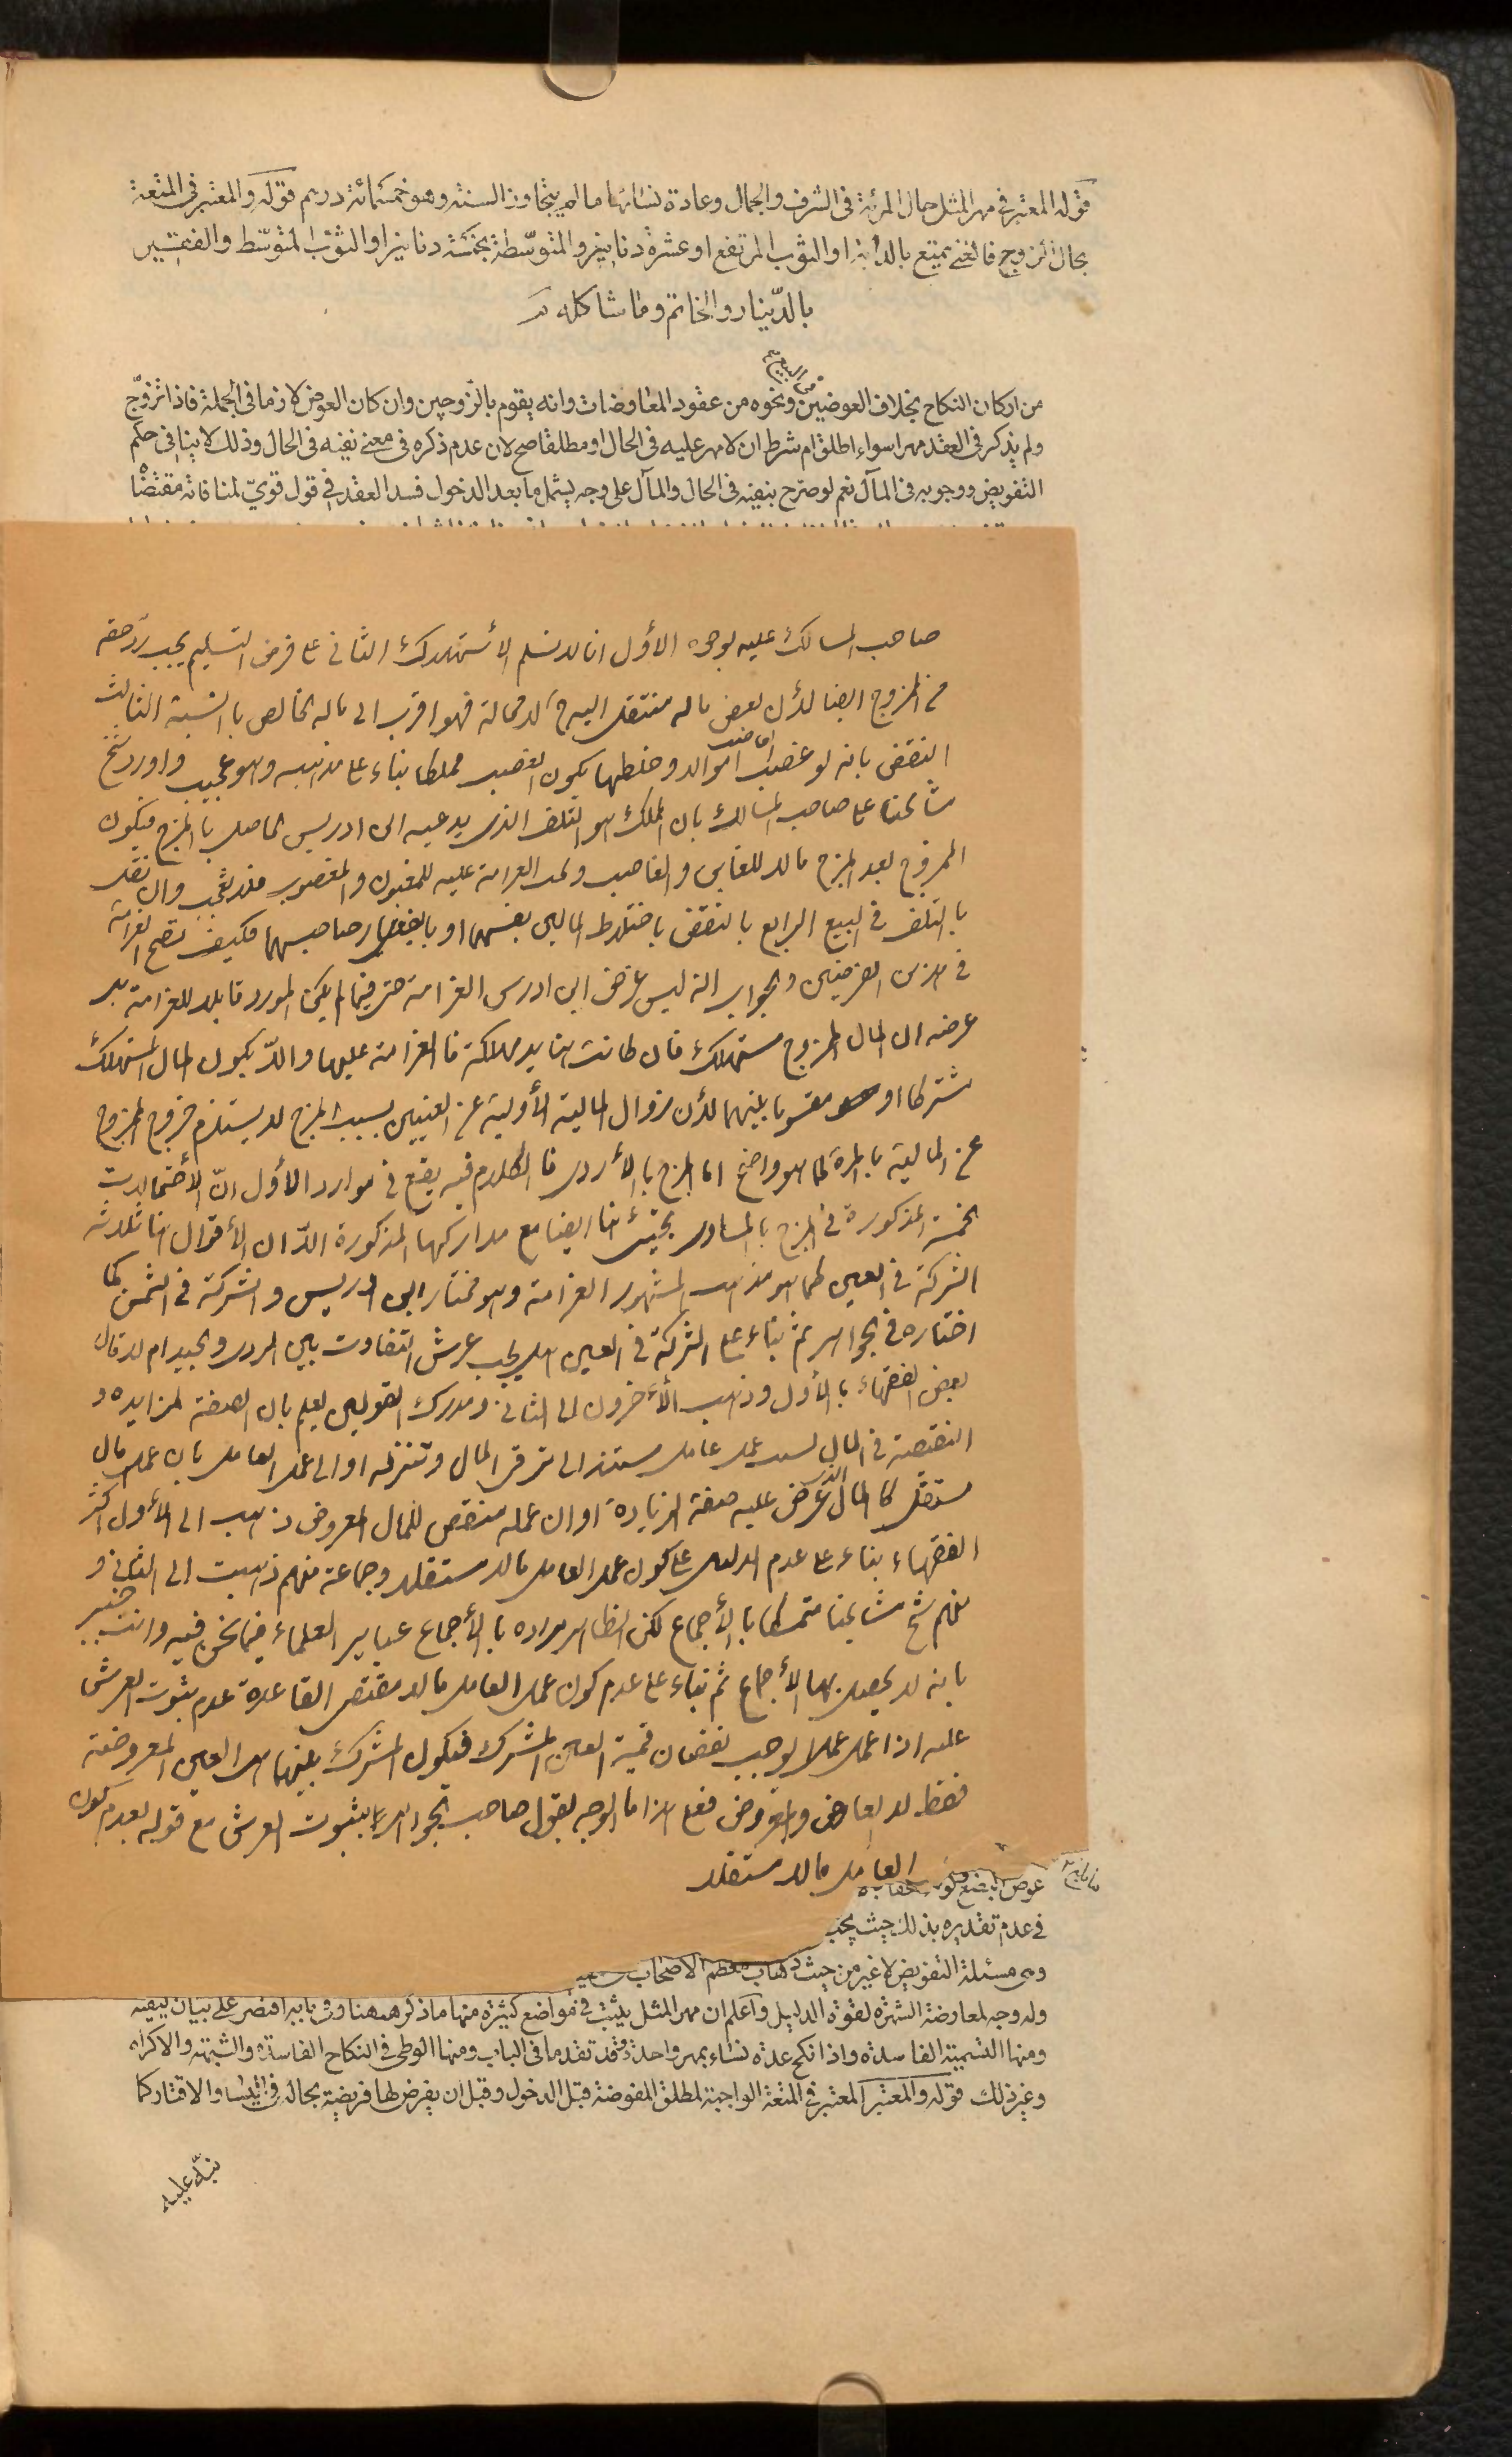 قوله المعتبر في مهر المثل حال المرئة في الشرف والجمال وعادة نسائها ما لم يتجاوز السنة وهو خمسمائة درهم قوله والمعتبر في المتعة
بحال الزوج فالغنى يمتع بالدابة او الثوب المرتفع او عشرة دنانير والمتوسطة بخمسة دنانير او الثوب المتوسط والفقير
بالدينار والخاتم وما شاكله
من البيع
من اركان النكاح بخلاف العوضين ونحوه من عقود المعاوضات وانه يقوم بالزوجين وان كان العوض لازما في الجملة فاذا تزوج
ولم يذكر في العقد مهرا سواء اطلق ام شرط ان لا مهر عليه في الحال او مطلقا صح لان عدم ذكره في معنى نفيه في الحال وذلك لا ينافى حكم
التفويض ووجوبه في المآل نعم لو صرح بنفيه في الحال والمآل على وجه يشمل ما بعد الدخول فسد العقد في قول قوي لمنافاته مقتضا
صاحب المسالك عليه بوجوه الأول انا لا نسلم الأستهلاك الثاني على فرض التسليم يجب رد حقه
من المزوج ايضا لأن بعض ماله منتقل اليه لا محالة فهو اقرب الى ماله الخالص بالنسبة الثالث
النقض بانه لو غصب الغاصب اموالا وخلطها يكون الغصب مملكا بناء على مذهبه وهو عجيب واورد شيخ
مشايخنا على صاحب المسالك بان الملك هو التلف الذي يدعيه ابن ادريس الحاصل بالمزج فيكون
الممزوج بعد المزج مالا للغابن والغاصب ولهذا الغرامة عليه للمغبون والمغصوب فلا تعجب وان نقل
بالتلف في البيع الرابع بالنقض باختلاط المالين بنفسهما او باختيار صاحبهما فكيف تصح الغرامة
في هذين الفرضين والجواب انه ليس غرض ابن ادريس الغرامة حتى فيما لم يكن المورد قابلا للغرامة بل
غرضه ان المال الممزوج مستهلك فان كانت هنا يد مهلكة فالغرامة عليها والا يكون المال المستهلك
مشتركا او مقسوما بينهما لأن زوال المالية الأولية عن العينين بسبب المزج لا يستلزم خروج الممزوج
عن المالية بالمرة كما هو واضح اما المزج بالأردى فالكلام فيه يقع في موارد الأول ان الأحتمالات
الخمسة المذكورة في المزج بالمساوى يجيئ هنا ايضا مع مداركها المذكورة الا ان الأقوال هنا ثلاثة
الشركة في العين كما هو مذهب المشهور الغرامة وهو مختار ابن ادريس والشركة في الثمن كما
اختاره في الجواهر ثم بناء على الشركة في العين هل يجب عرش التفاوت بين الردى والجيد ام لا قال
بعض الفقهاء بالأول وذهب الأخرون الى الثاني ومدرك القولين يعلم بان الصفة المزايده و
النقيصة في المال بسبب عمل عامل مستند الى ترقى المال وتنزله او الى عمل العامل بان عمله مال
مستقل كالمال الذي عرض عليه صفة الزيادة او ان عمله منقص للمال المعروض ذهب الى الأول اكثر
الفقهاء بناء على عدم الدليل على كون عمل العامل مالا مستقلا وجماعة منهم ذهبت الى الثاني و
منهم شيخ مشايخنا متمسكا بالأجماع لكن الظاهر مراده بالأجماع عبايير العلماء فيما نحن فيه وانت خبير
بانه لا يحصل بها الأجماع ثم بناء على عدم كون عمل العامل مالا مقتضى القاعدة عدم ثبوت العرش
عليه اذا عمل عملا يوجب نقصان قيمة العين المشترك فيكون المشترك بينهما هى العين المعروضة
فقط لا العارض والمعروض فعلى هذا ما الوجه لقول صاحب الجواهر بثبوت العرش مع قوله بعدم كون
العامل مالا مستقلا
عوض البضع
في عدم تقديره بذلك حيث يجب
وهى مسئلة التفويض لا غير من حيث ذهاب معظم الاصحاب
وله وجه لمعاوضة الشهرة لقوة الدليل واعلم ان مهر المثل يثبت في مواضع كثيرة منها ما ذكر ههنا وفي بابه اقتصر على بيان كيفيته
ومنها التسمية الفاسدة واذا نكح عدة نساء بمهر واحد وقد تقدما في الباب ومنها الوطى في النكاح الفاسد والشبهة والاكراه
وغير ذلك قوله والمعتبر المعتبر في المتعة الواجبة لمطلق المفوضة قبل الدخول وقبل ان يفرض لها فريضة بحاله في اليسار والاقتار كما
نبه عليه